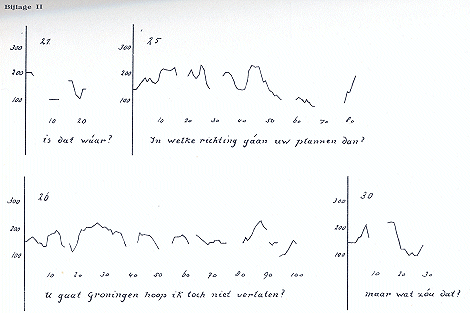 Bijlage II
21
300
200
100
10 20
is dat wáár?
25
300
200
100
10 20 30 40 50 60 70 80
In welke richting gáan uw plannen dan?
26
300
200
100
10 20 30 40 50 60 70 80 90 100
U gaat Groningen hoop ik toch niet verlaten?
30
300
200
100
10 20 30
maar wat zóu dat?